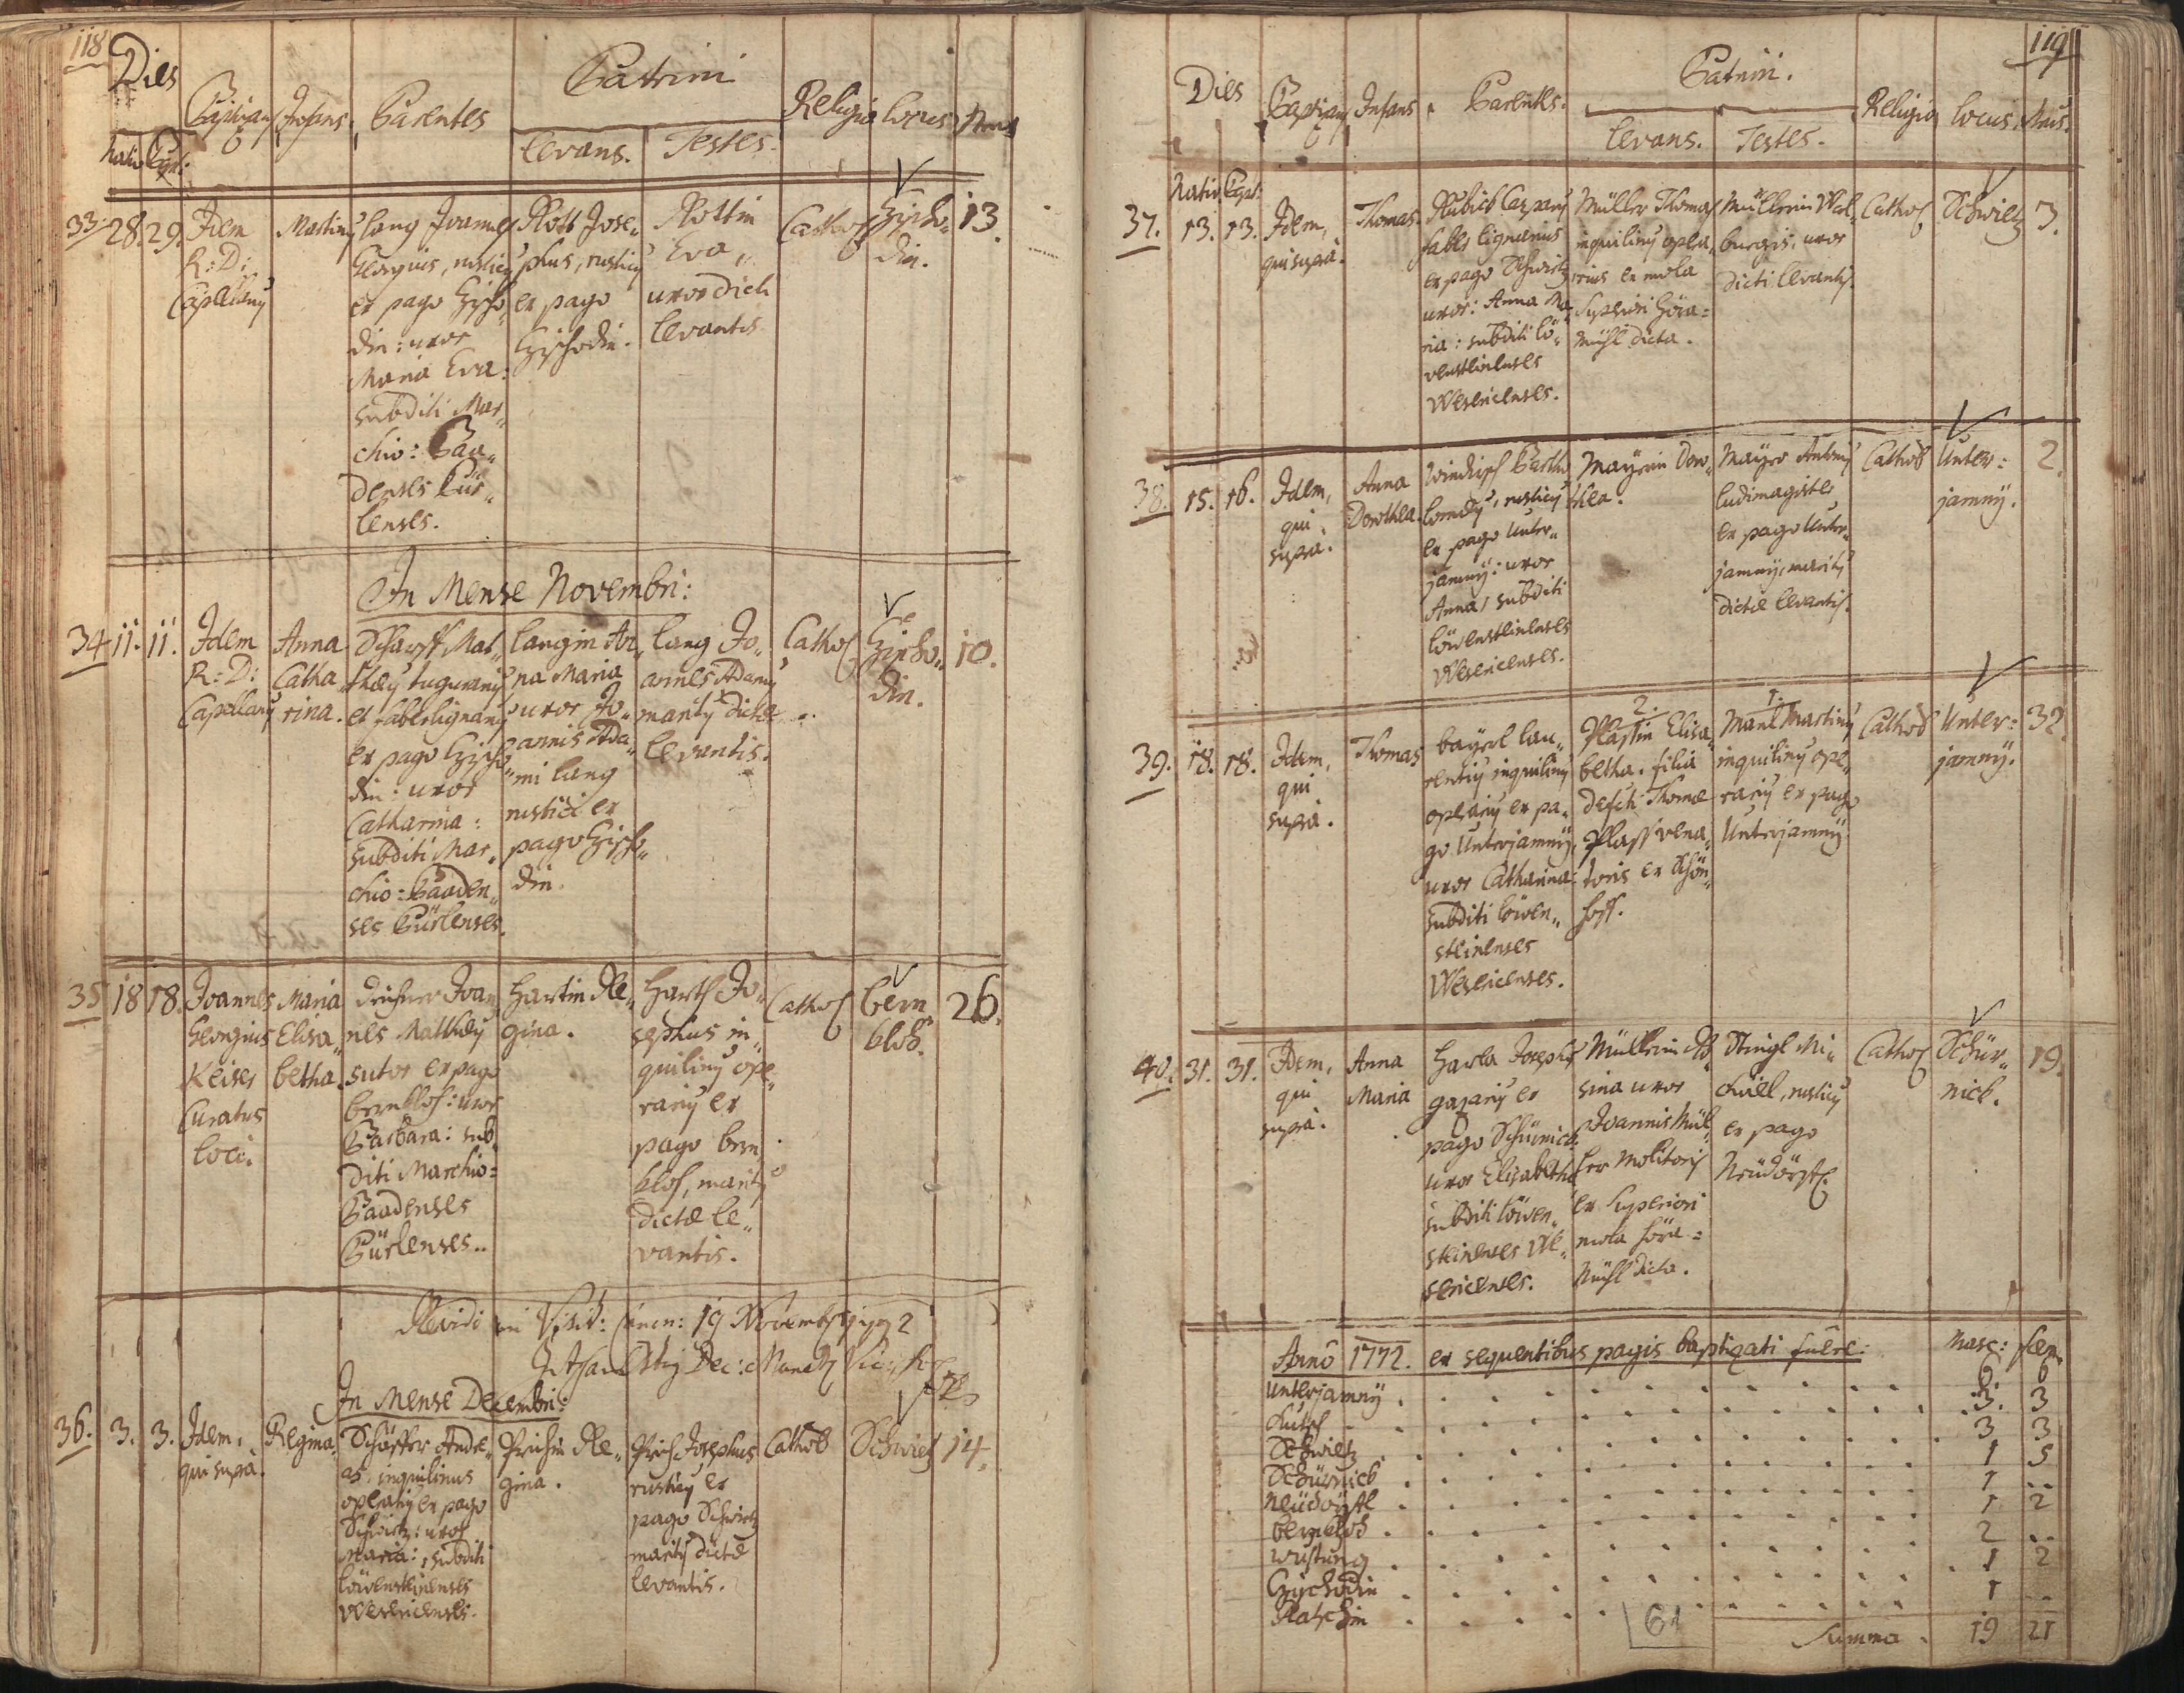 118
Dies
Nativ Bapt:
Baptizans
Infans
Parentes
Patrini
Levans.
Testes.
Religio
Locus
Nrus
33. 28. 29.
Idem
R: D:
Capellanus
Martinus
Lang Joannes
Georgius, rusticus
ex pago
din: uxor
Maria Eva:
subditi Mar„
chio: Baa„
denses
lenses.
Rott Jose„
phus, rusticus
ex pago
Rottin
Eva,
uxor dicti
levantis
Cathol
din.
13.
In Mense Novembri:
34 11. 11.
Idem
R: D:
Capellanus
Anna
Catha
rina.
Scharff Mat„
thæus tugurarius
et faber lignarius
ex pago
din: uxor
Catharina:
subditi Mar„
chio: Baaden„
ses
Langin An„
na Maria
uxor Jo„
annis Ada„
mi Lang
rustici ex
pago
din.
Lang Jo„
annes Adamus
maritus dictæ
levantis.
Cathol
din.
10.
35 18 18.
Joannes
Georgius
Keiser
Curatus
loci.
Maria
Elisa„
betha.
Joan„
nes Matthæus
sutor ex pago
bernklos: uxor
Barbara: sub„
diti Marchio=
Baadenses
Hartin Re„
gina.
Harth Jo„
sephus in„
quilinus ope„
rarius ex
pago bern
klos, maritus
dictæ le„
vantis.
Cathol
bern
klos.
26.
Revidi in Visit: Canon: 19 Novembris 1772
In Mense Decembri:
36. 3. 3.
Idem,
qui supra.
Regina
Schäffer Andre„
as inquilinus
operarius ex pago
Schwietz: uxor
Maria: subditi
löwensteinenses
Wesericenses.
Re„
gina.
Josephus
rusticus ex
pago Schwietz
maritus dictæ
levantis.
Cathol
Schwietz
14.
119
Dies
Nativ Bapt:
Baptizans
Infans
Parentes.
Patrini.
Levans.
Testes.
Religio
Locus.
Nrus.
37. 13. 13.
Idem,
qui supra.
Thomas.
Kubick Casparus
faber lignarius
ex pago Schwietz
uxor: Anna Ma„
ria: subditi lö„
wensteinenses
Wesericenses.
Müller Thomas
inquilinus opera„
rius ex mola
superiori Höra=
Mühl dicta.
Müllerin Wal„
burgis, uxor
dicti levantis.
Cathol
Schwietz
3.
38. 15. 16.
Idem,
qui
supra.
Anna
Dorothea.
Windisch Bartho
lomæus, rusticus
ex pago Unter„
jamny: uxor
Anna, subditi
löwensteinenses
Wesericenses.
Mayrin Doro„
thea.
Mayer Antonius
ludimagister
ex pago Unter„
jamny, maritus
dictæ levantis.
Cathol
Unter:
jamny.
2.
39. 18. 18.
Idem,
qui
supra.
Thomas
bayerl lau„
rentius inquilinus
operarius ex pa„
go Unterjamny,
uxor Catharina:
subditi löwen„
steinenses
Wesericenses.
2.
Plassin Elisa„
betha. filia
defcti Thomæ
Plass vena„
toris ex Schön„
hoff.
1.
Mantl Martinus
inquilinus ope„
rarius ex pago
Unterjamny.
Cathol
Unter:
jamny.
32.
40. 31. 31.
Idem,
qui
supra.
Anna
Maria
Harla Josephus
gazarius ex
pago Schürnick:
uxor Elisabetha
subditi löwen„
steinenses We„
sericenses.
Müllerin Ro„
sina uxor
Joannis Mül„
ler Molitoris
ex superiori
mola Höra=
Mühl dicta.
Stingl Mi„
chäel, rusticus
ex pago
Neüdörfl.
Cathol
Schür„
nick.
19.
Annô 1772. ex sequentibus pagis baptizati fuêre:
Masc: fœm.
Unterjamny . . . 6
Kutsch . . . 3. 3
Schwietz . . . 3 3
Schürnick . . . 1 5
Neüdörfl . . . 1 ..
bernklos . . . 1 2
Wustung . . . 2 ..
Czischodin . . . 1 2
Ratschin . . . 1 ..
61
Summa . 19 21